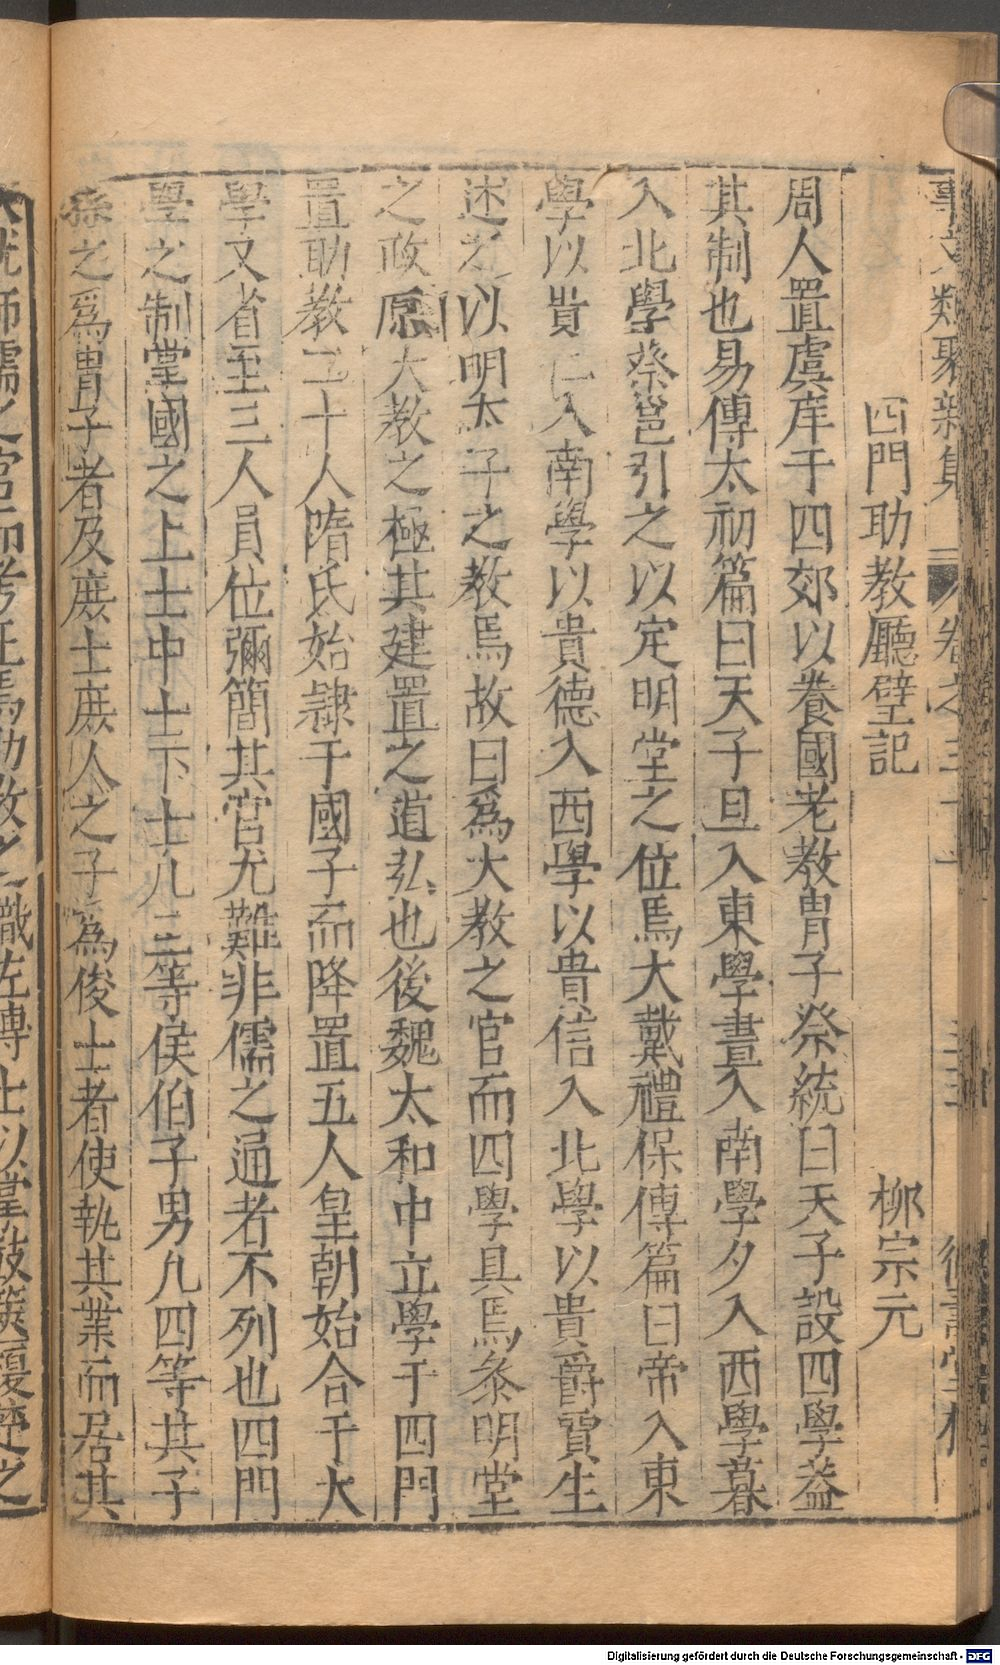 事文類聚新集 卷之三十一 三三 德壽堂梓
四門助教廳壁記 柳宗元
周人置虞庠于四郊以養國老教胄子祭統曰天子設四學葢
其制也易傳太初篇曰天子旦入東學晝入南學夕入西學暮
入北學蔡邕引之以定明堂之位焉大戴禮保傳篇曰帝入東
學以貴仁入南學以貴德入西學以貴信入北學以貴爵賈生
述之以明太子之教焉故曰爲大教之官而四學具焉叅明堂
之政原大教之極其建置之道弘也後魏太和中立學于四門
置助教二十人隋氏始隷于國子而降置五人皇朝始合于太
學又省至三人員位彌簡其官尤難非儒之通者不列也四門
學之制掌國之上士中士下士凢三等侯伯子男凢四等其子
孫之爲胄子者及庶士庶人之子爲俊士者使執其業而居其
師儒之官而考正焉助教之職佐博士以掌鼓篋榎楚之